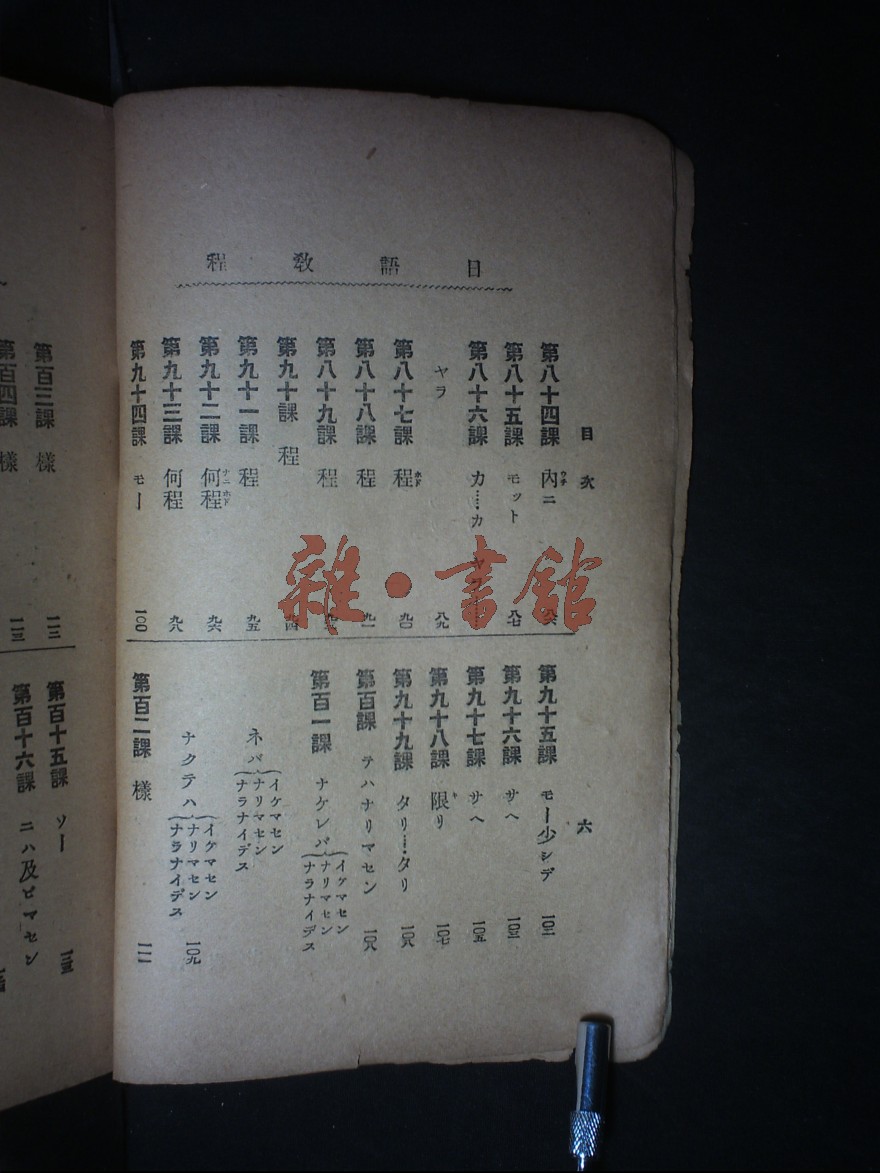 日語教程
目次 六
第八十四課 內ニ 八六
第八十五課 モット 八七
第八十六課 カ……カ
ヤラ 八九
第八十七課 程 九〇
第八十八課 程 九一
第八十九課 程
第九十課 程 九四
第九十一課 程 九五
第九十二課 何程 九六
第九十三課 何程 九八
第九十四課 モー 一〇〇
第九十五課 モー少シデ 一〇二
第九十六課 サヘ 一〇三
第九十七課 サヘ 一〇五
第九十八課 限リ 一〇七
第九十九課 タリ……タリ 一〇八
第百課 テハナリマセン 一〇八
第百一課 ナケレバ
イケマセン
ナリマセン
ナラナイデス
ネバ
イケマセン
ナリマセン
ナラナイデス
ナクテハ
イケマセン
ナリマセン
ナラナイデス
一〇九
第百二課 樣 一一一
第百三課 樣 一一二
第百四課 樣 一一三
第百十五課 ソー
第百十六課 ニハ及ビマセン
雜·書館